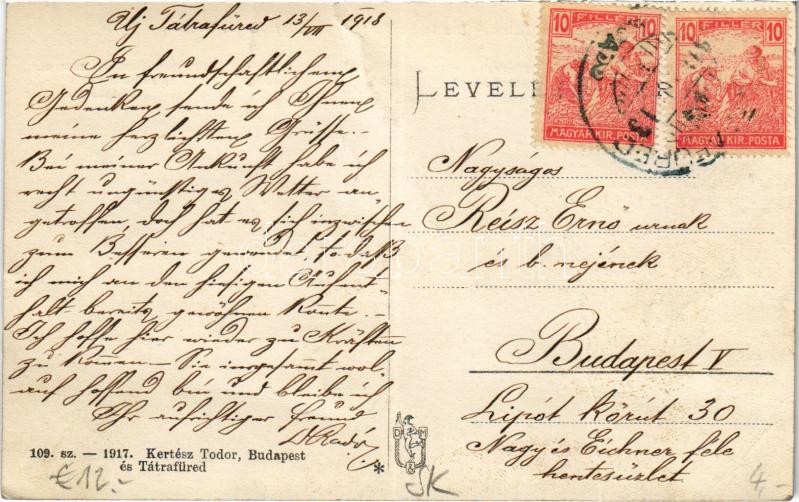 Uj Tátrafüred 13/VII 1918
In freundschaftlichem
Gedenken sende ich Ihnen
meine herzlichsten Grüsse.-
Bei meiner Ankunft habe ich
recht ungünstiges Wetter an-
getroffen, doch hat es sich inzwischen
zum Besseren gewendet so daß
ich mich an den hiesigen Aufent-
halt bereits gewöhnen konnte.-
Ich hoffe hier wieder zu Kräften
zu kommen - Sie insgesammt wol-
auf hoffend bin und bleibe ich
Ihr aufrichtiger Freund
DRadó
109. sz. — 1917. Kertész Todor, Budapest
és Tátrafüred
€12.-
LEVEL
10 FILLÉR 10
MAGYAR KIR. POSTA
10 FILLÉR 10
MAGYAR KIR. POSTA
Nagyságos
Reisz Ernő urnak
és b. nejének
Budapest V
Lipót körút 30
Nagy és Eichner féle
hentesüzlet
D M
SK
4-
darabanth